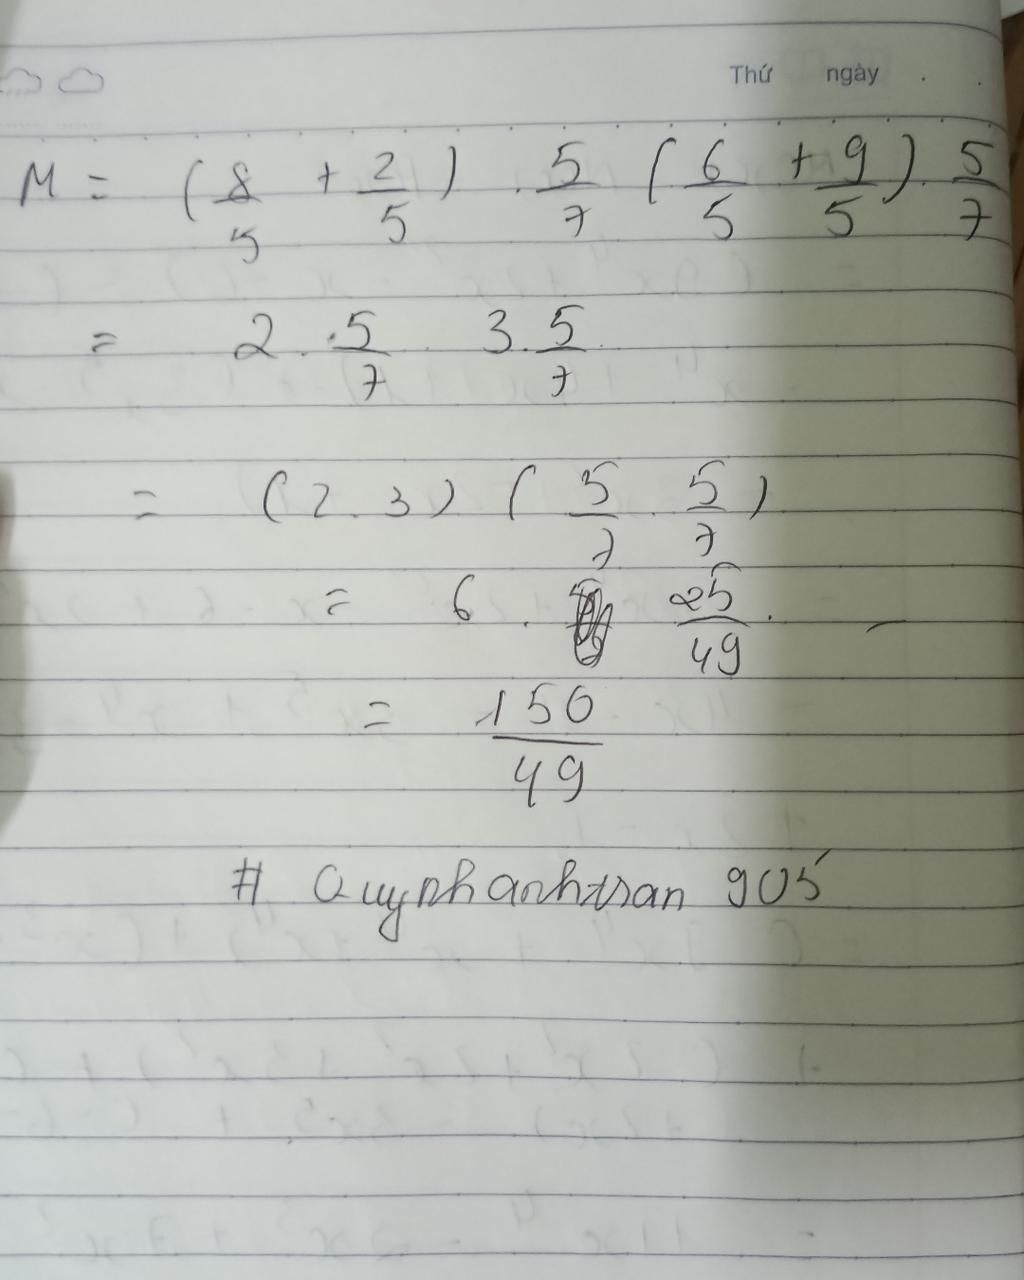 Thứ ngày . .
M = (8/5 + 2/5) . 5/7 (6/5 + 9/5) . 5/7
= 2 . 5/7 . 3 . 5/7
= (2 . 3) (5/7 . 5/7)
= 6 . 25/49 .
= 150/49
# Quynhanhtran 905